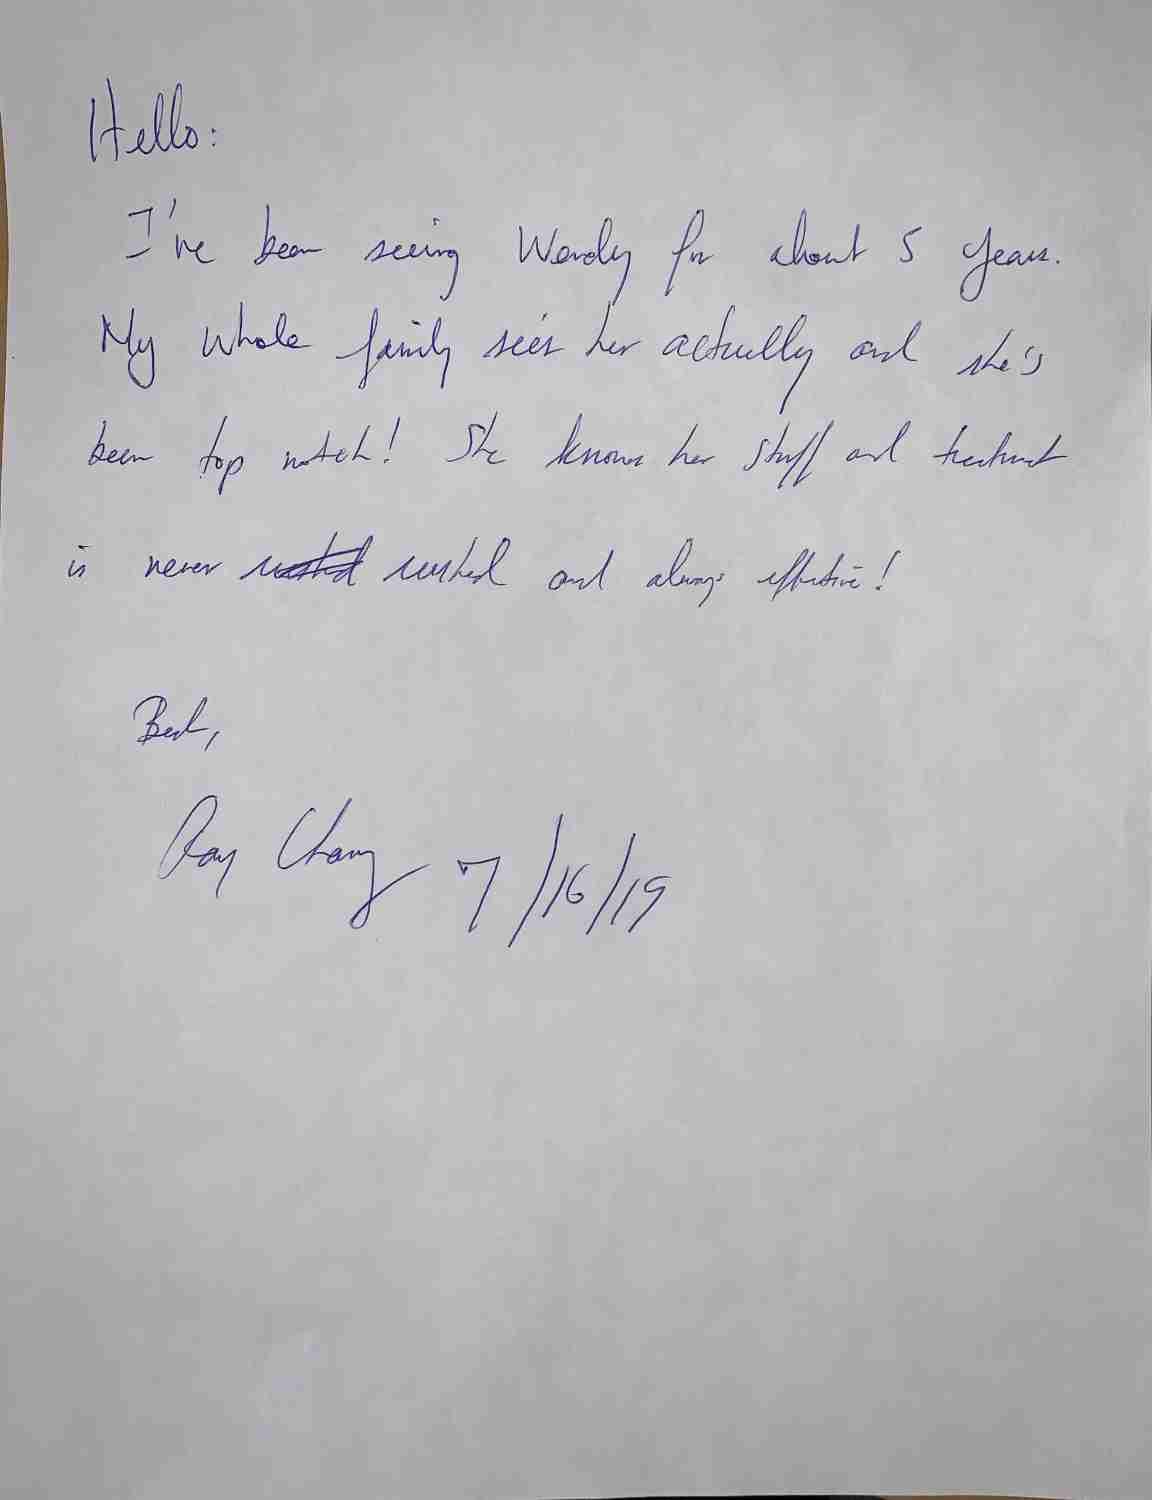 Hello:
I've been seeing Wendy for about 5 years.
My whole family sees her actually and she's
been top notch! She knows her stuff and treatment
is never rushed and always effective!
Best,
Ray Chang 7/16/19